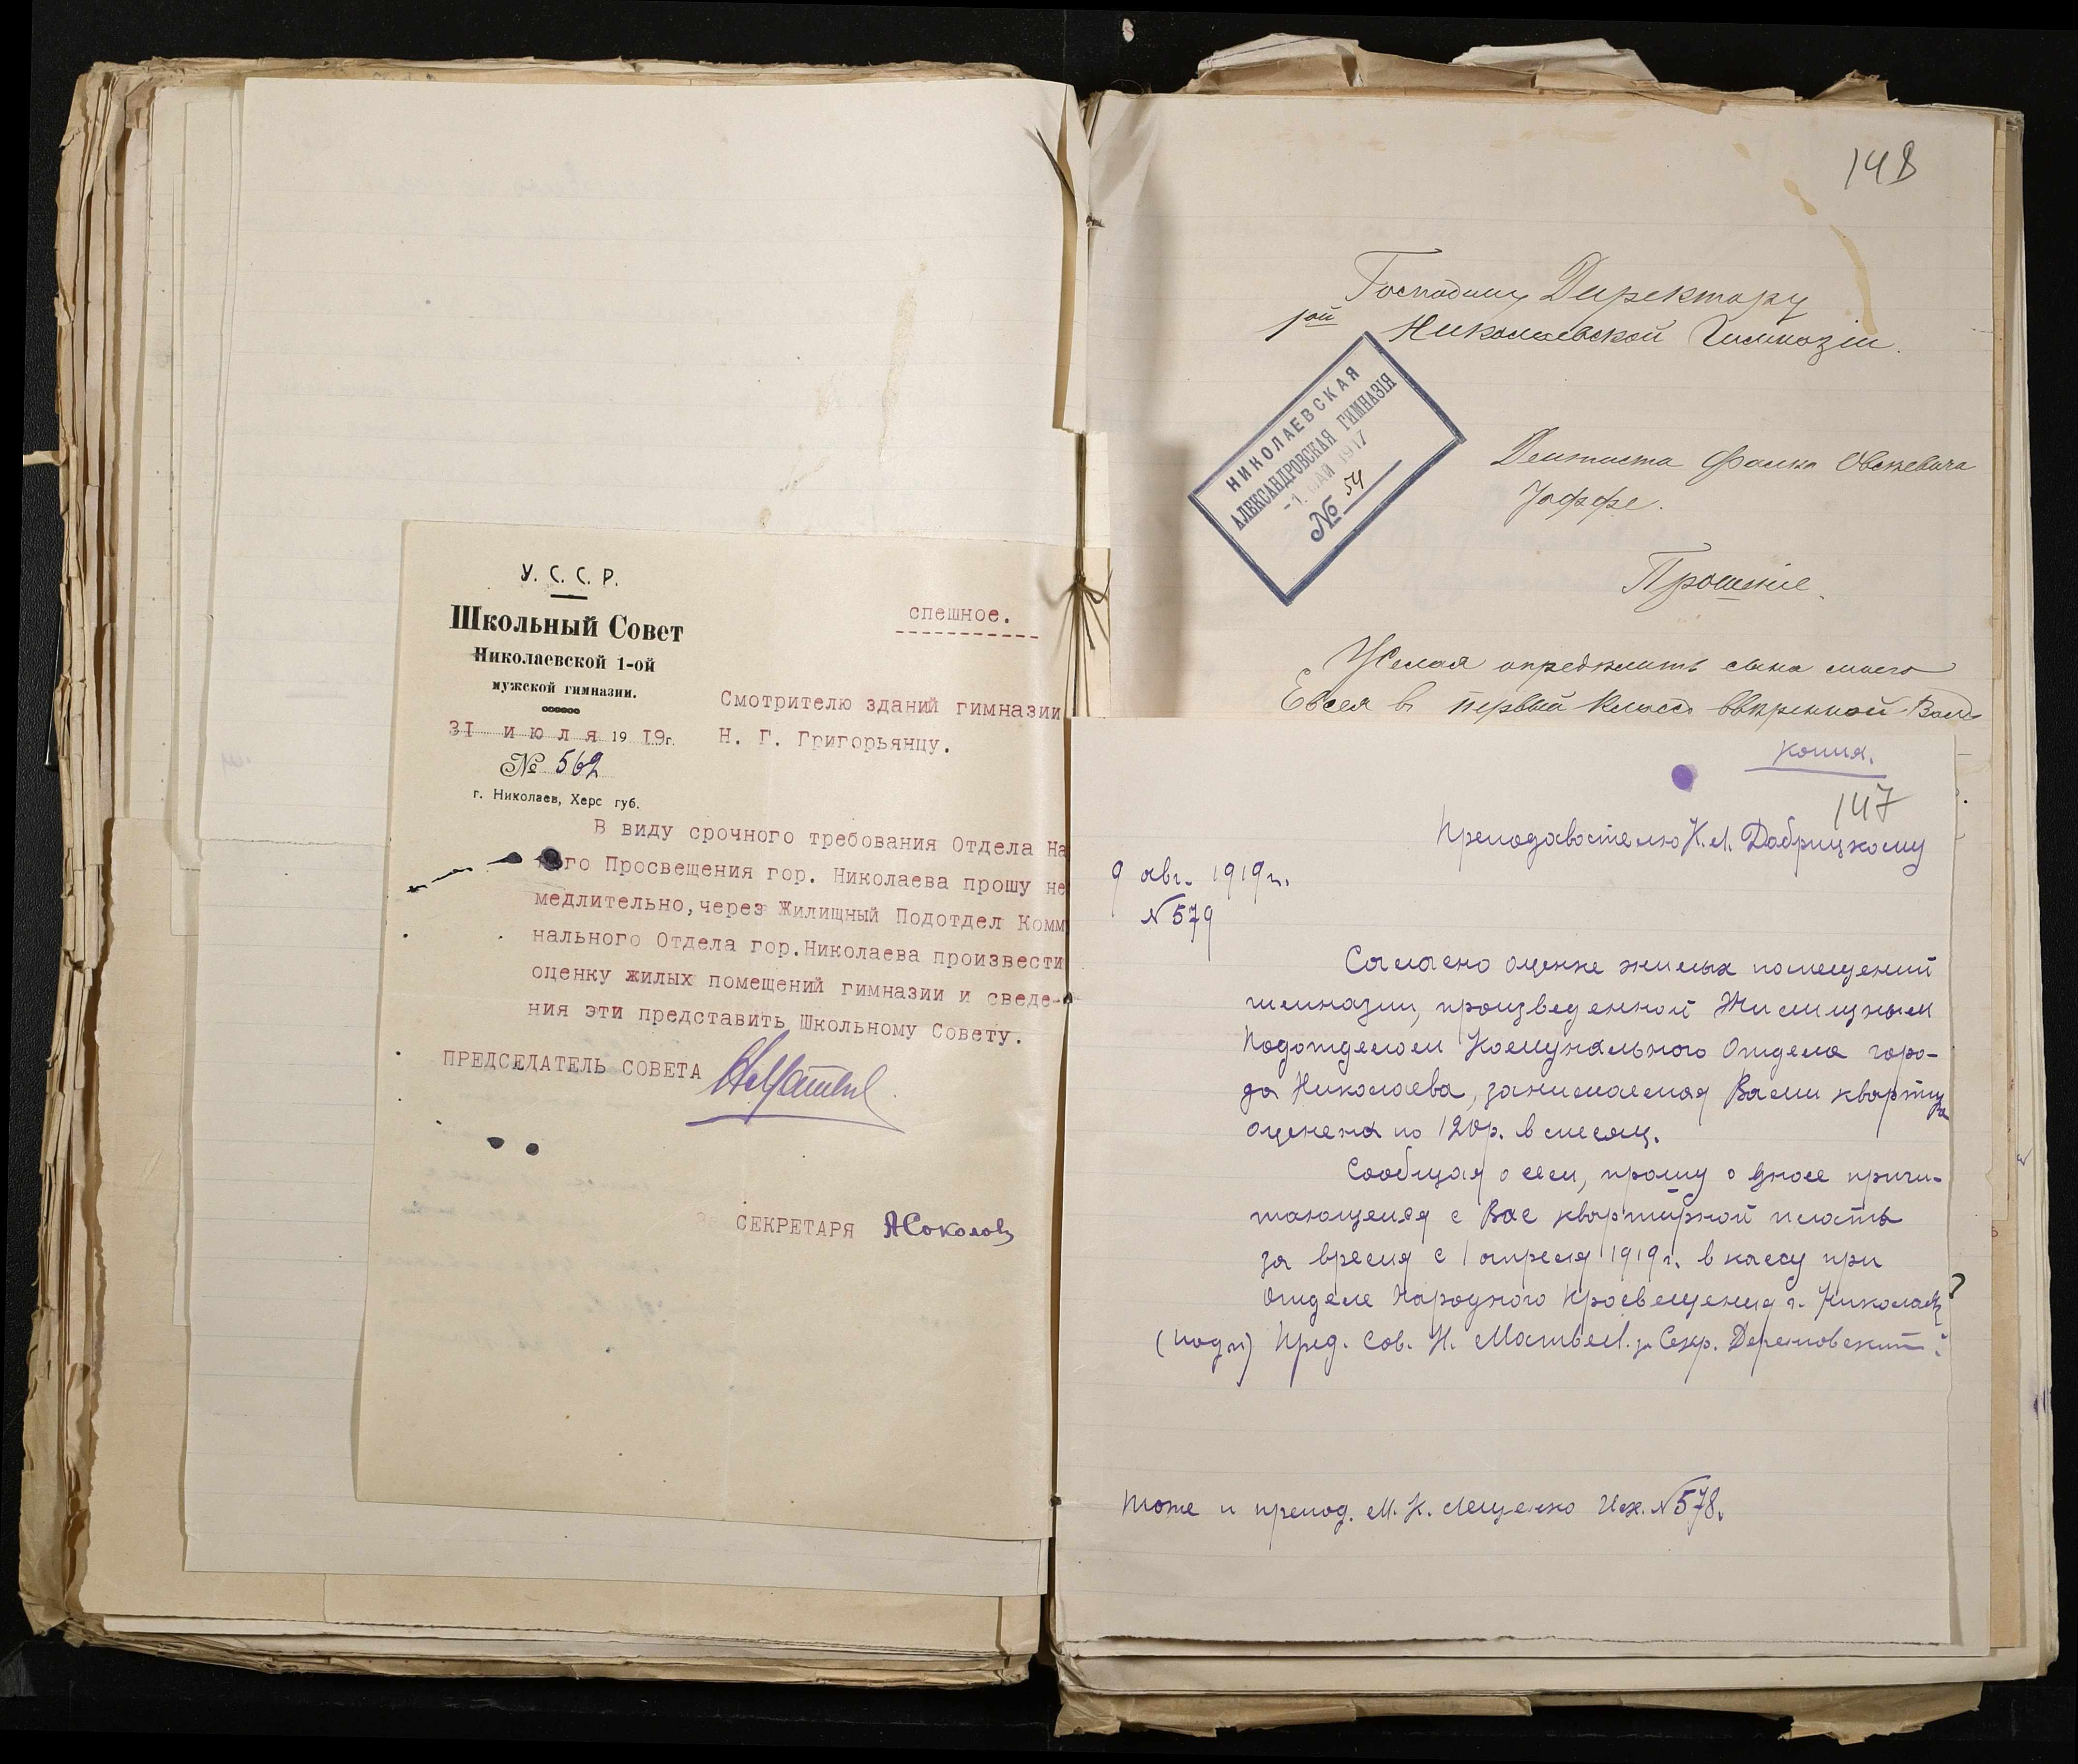 У. С. С. Р.
Школьный Совет
Николаевской 1-ой
мужской гимназии.
31 июля 1919г.
№ 562
г. Николаев, Херс губ.
спешное.
Смотрителю зданий гимназии
Н. Г. Григорьянцу.
В виду срочного требования Отдела На
го Просвещения гор. Николаева прошу не
медлительно, через Жилищный Подотдел Комм
нального Отдела гор.Николаева произвести
оценку жилых помещений гимназии и сведе-
ния эти представить Школьному Совету.
ПРЕДСЕДАТЕЛЬ СОВЕТА
СЕКРЕТАРЯ АСоколов
148
Господину Директору
1ой Николаевской Гимназіи.
НИКОЛАЕВСКАЯ
АЛЕКСАНДРОВСКАЯ ГИМНАЗІЯ
-1. МАЙ 1917
№ 54
Дентиста Фалка Овсѣевича
Іоффе.
Прошеніе.
Желая опредѣлить сына моего
Евсея въ первый классъ ввѣренной Вамъ
копия.
147
Преподавателю К. И. Добрицкому
9 авг. 1919 г.
№ 579
Согласно оценке жилых помещений
гимназии, произведенной Жилищным
Подотделом Комунального Отдела горо-
да Николаева, занимаемая Вами квартира
оценена по 120р. в месяц.
Сообщая о сем, прошу о взносе причи-
тающейся с Вас квартирной платы
за время с 1 апреля 1919 г. в кассу при
Отделе Народного Просвещения г. Николаева
(подп) Пред. Сов. Н. Матвеев. за Секр.
тоже и препод. М. К. Лещенко Исх. № 578.